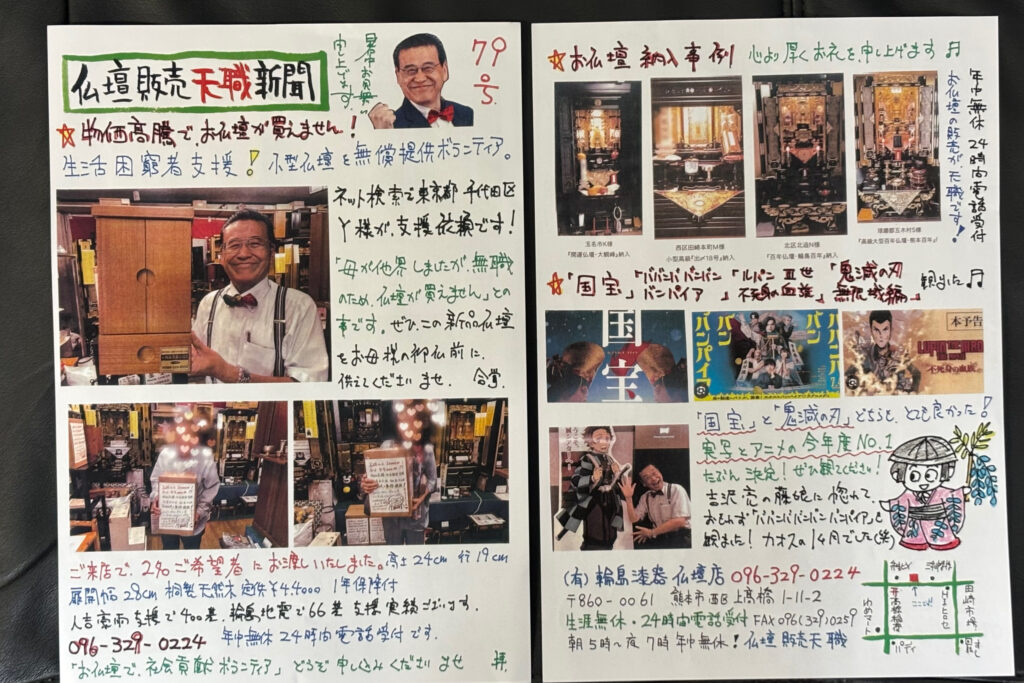 仏壇販売天職新聞
暑中お見舞い
申し上げます。
79号
☆物価高騰で、お仏壇が買えません!
生活困窮者支援!小型仏壇を無償提供ボランティア。
ネット検索で東京都千代田区
Y様が、支援依頼です!
「母が他界しましたが、無職
のため、仏壇が買えません」との
事です。ぜひ、この新品仏壇
をお母様の御仏前に、
供えしてくださいませ。合掌
ご来店で、2名ご希望者にお渡しいたしました。高さ24cm 行19cm
扉開幅28cm 桐製天然木 定価¥44,000 1年保障付
人吉豪雨支援で400基、輪島地震で66基支援実績ございます。
096-329-0224 年中無休24時間電話受付です。
「お仏壇で、社会貢献ボランティア」どうぞ申し込みくださいませ 拝
☆お仏壇納入事例 心より厚くお礼を申し上げます♫
年中無休24時間電話受付
お仏壇の販売が、天職です!
玉名市K様
『開運仏壇・大観峰』納入
西区田崎本町M様
小型高級『出〆18号』納入
北区北迫N様
『百年仏壇・輪島百年』納入
球磨郡五木村S様
『高級大型百年仏壇・熊本百年』
☆「国宝」「ババンババンバンバンパイア」「ルパン三世 不死身の血族」「鬼滅の刃 無限城編」観ました♫
国宝
バンパイア
バンバン
本予告
LUPIN THE IIIRD
不死身の血族
「国宝」と「鬼滅の刃」どちらも、とても良かった!
実写とアニメの今年度NO.1
たぶん決定!ぜひ観てください!
吉沢亮の藤娘に惚れて、
おもわず「ババンババンバンバンパイア」も
観ました!カオスの1ヶ月でした(笑)
(有)輪島漆器仏壇店 096-329-0224
〒860-0061 熊本市西区上高橋1-11-2
生涯無休・24時間電話受付 FAX096(329)0259
朝5時〜夜7時 年中無休!仏壇販売天職
ここだよ
田崎市場
ゆめマート